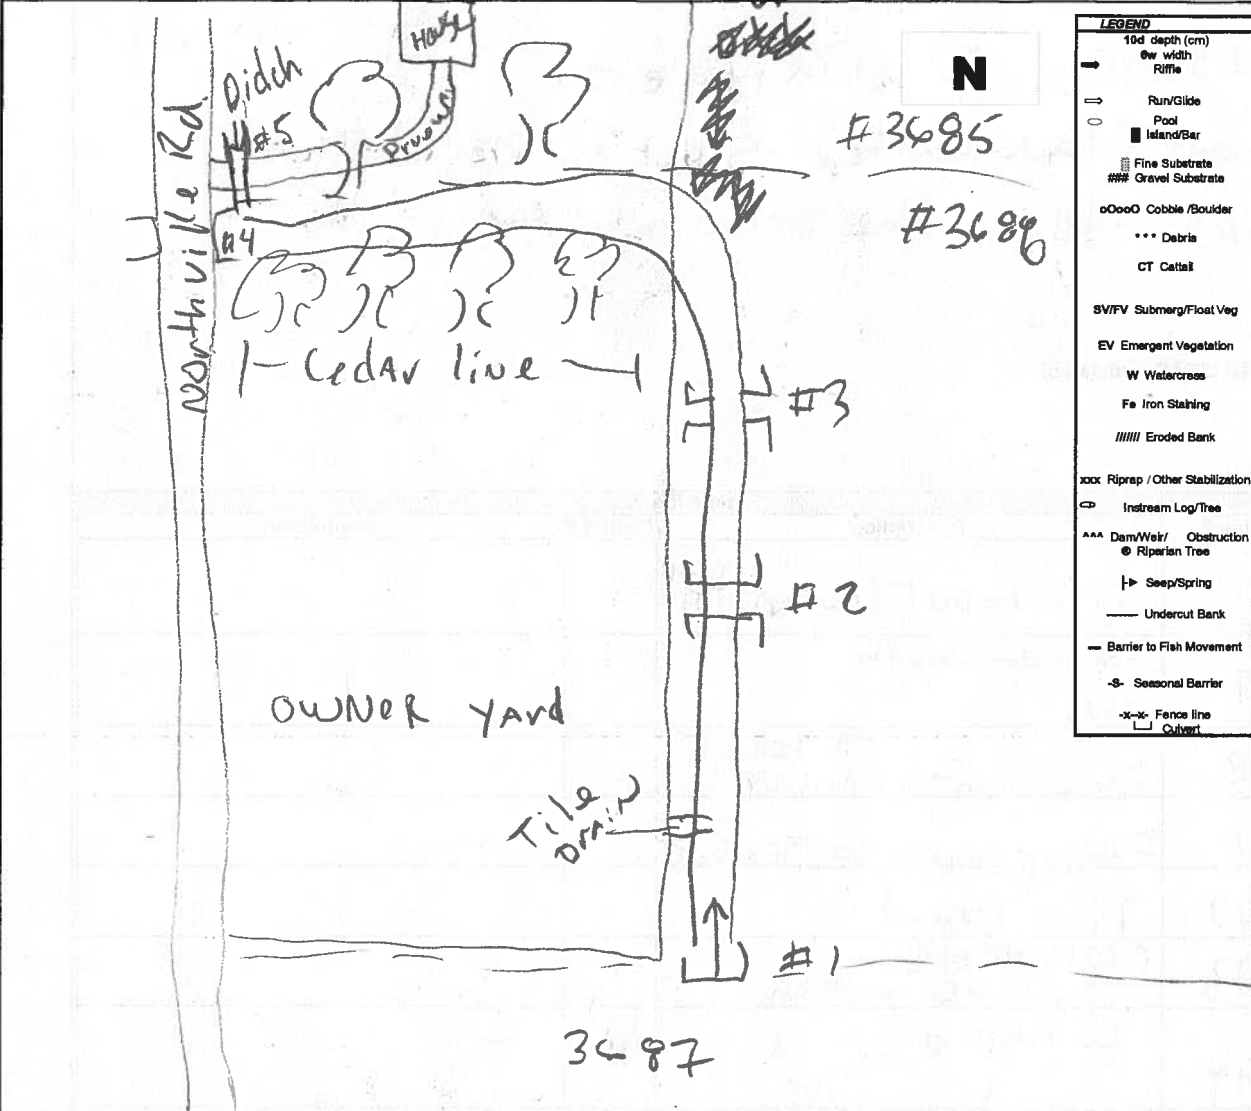 House
Didch
#5
Northville Rd.
N
#3685
#3689
#4
Cedar line
#3
#2
OWNER YArd
Tile
Drain
#1
3687
LEGEND
10d depth (cm)
6w width
Riffle
Run/Glide
Pool
Island/Bar
Fine Substrate
### Gravel Substrate
oOooO Cobble /Boulder
••• Debris
CT Cattail
SV/FV Submerg/Float Veg
EV Emergent Vegetation
W Watercress
Fe Iron Staining
/////// Eroded Bank
xxx Riprap / Other Stabilization
Instream Log/Tree
^^^ Dam/Weir/ Obstruction
Riparian Tree
Seep/Spring
Undercut Bank
Barrier to Fish Movement
-S- Seasonal Barrier
-x--x- Fence line
Culvert